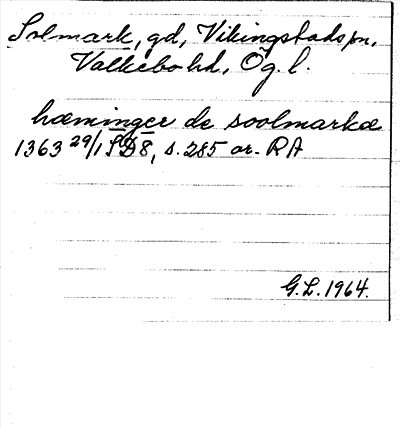 Solmark, gd, Vikingstads sn,
Valkebo hd, Ög. l.
hæminger de soolmarkæ
1363 29/1 SD 8, s. 285 or. RA
G.L. 1964.